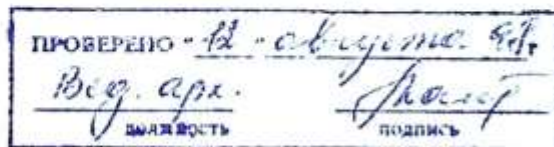 ПРОВЕРЕНО "12" августа
Вед. арх.
должность подпись